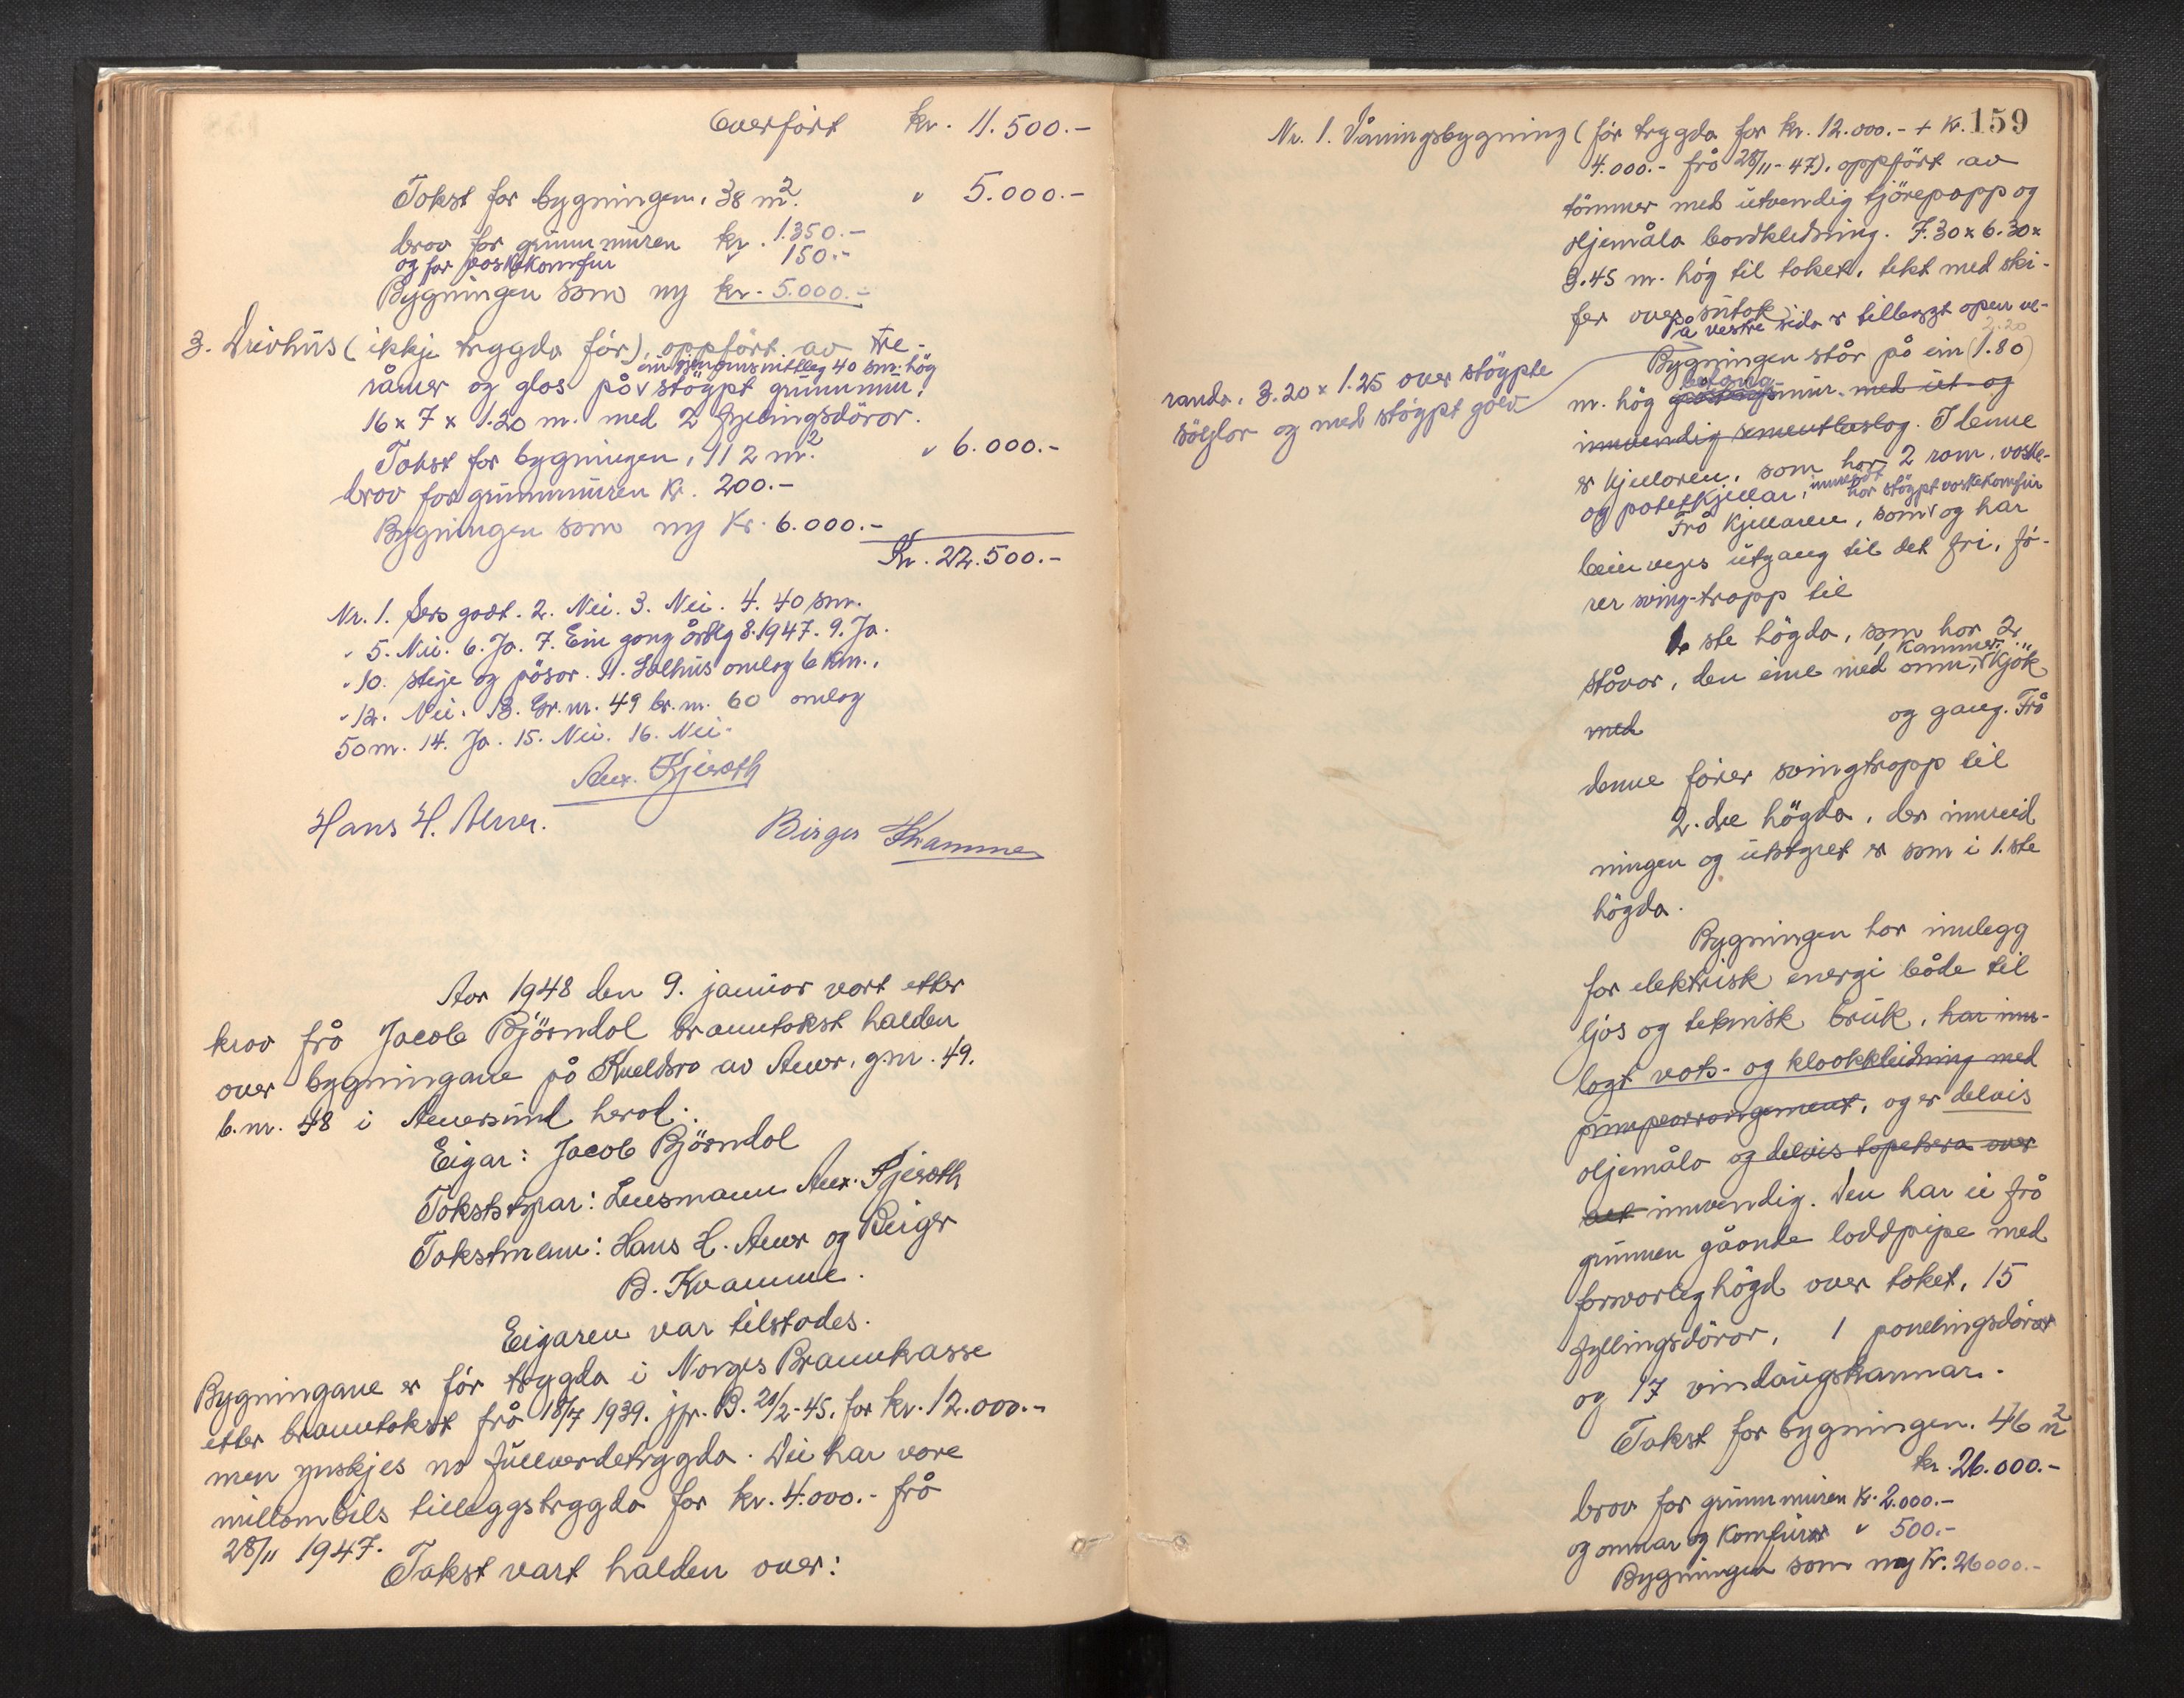 Overført kr. 11.500.-
Takst for bygningen, 38 m². " 5.000.-
brav for grunnmuren kr. 1.350.-
og for vaskekomfur " 150.-
Bygningen som ny kr. 5.000.-
3. Drivhus (ikkje trygda før), oppført av tre-
ein gjennomsnittleg 40 sm. høg
råmer og glas på v støypt grunnmur.
16 x 7 x 1.20 m. med 2 fyllingsdörar.
Takst for bygningen, 112 m². " 6.000.-
brav for grunnmuren kr. 200.-
Bygningen som ny kr. 6.000.-
Kr. 22.500.-
Nr. 1. Sers godt. 2. Nei. 3. Nei. 4. 40 sm.
" 5. Nei. 6. Ja. 7. Ein gong årleg 8. 1947. 9. Ja.
" 10. Stige og pøsar. 11. Salhus omlag 6 km.
" 12. Nei. 13. Gr. nr. 49 br. nr. 60 omlag
50 m. 14. Ja. 15. Nei. 16. Nei.
Alex. Fjeroth
Hans H. Alver. Birger Kvamme
Aar 1948 den 9. januar vart etter
krav frå Jacob Bjørndal branntakst halden
over bygningane på Kveldsro av Alver, g.nr. 49.
b.nr. 48 i Alversund herad:
Eigar: Jacob Bjørndal
Takststyrar: Lensmann Alex. Fjeroth
Takstmenn: Hans H. Alver og Birger
B. Kvamme.
Eigaren var tilstades.
Bygningane er før trygda i Norges Brannkasse
etter branntakst frå 18/7 1939. jfr. B. 20/2-45, for kr. 12.000.-
men ynskjes no fullverdetrygda. Dei har vore
millombils tilleggstrygda for kr. 4.000.- frå
28/11 1947.
Takst vart halden over:
159
Nr. 1. Våningsbygning (før trygda for kr. 12.000.- + kr.
4.000.- frå 28/11-47), oppført av
tömmer med utvendig tjörepapp og
oljemåla bordkledning. 7.30 x 6.30 x
3.45 m. høg til taket, tekt med ski-
fer over sutak
På vestre sida er tilbygt open ve-
randa, 3.20 x 1.25 over støypte
söylor og med støypt golv
2.20
Bygningen står på ein (1.80)
betong-
m. høg mur. med ut- og
innvendig sementbeslag. I denne
er kjellaren, som har 2 rom, vaske-
og potetkjellar, innreidt har støypt vaskekomfur
Frå kjellaren, som v og har
beinveges utgang til det fri, fø-
rer sving-trapp til
1. ste högda, som har 2
1 kammer
stover, den eine med omn, v kjøk
med og gang. Frå
denne fører svingtrapp til
2. dre högda, der innreid
ningen og utstyret er som i 1. ste
högda.
Bygningen har innlegg
for elektrisk energi både til
ljos og teknisk bruk, har inn-
lagt vats- og kloakkleidning med
pumpearrangement, og er delvis
oljemåla og delvis tapetsera over
alt innvendig. Den har ei frå
grunnen gåande loddpipe med
forsvarleg högd over taket, 15
fyllingsdörar, 1 panelingsdörar
og 17 vindaugskarmar.
Takst for bygningen. 46 m²
kr. 26.000.-
brav for grunnmuren kr. 2.000.-
og omnar og komfurar " 500.-
Bygningen som ny kr. 26000.-